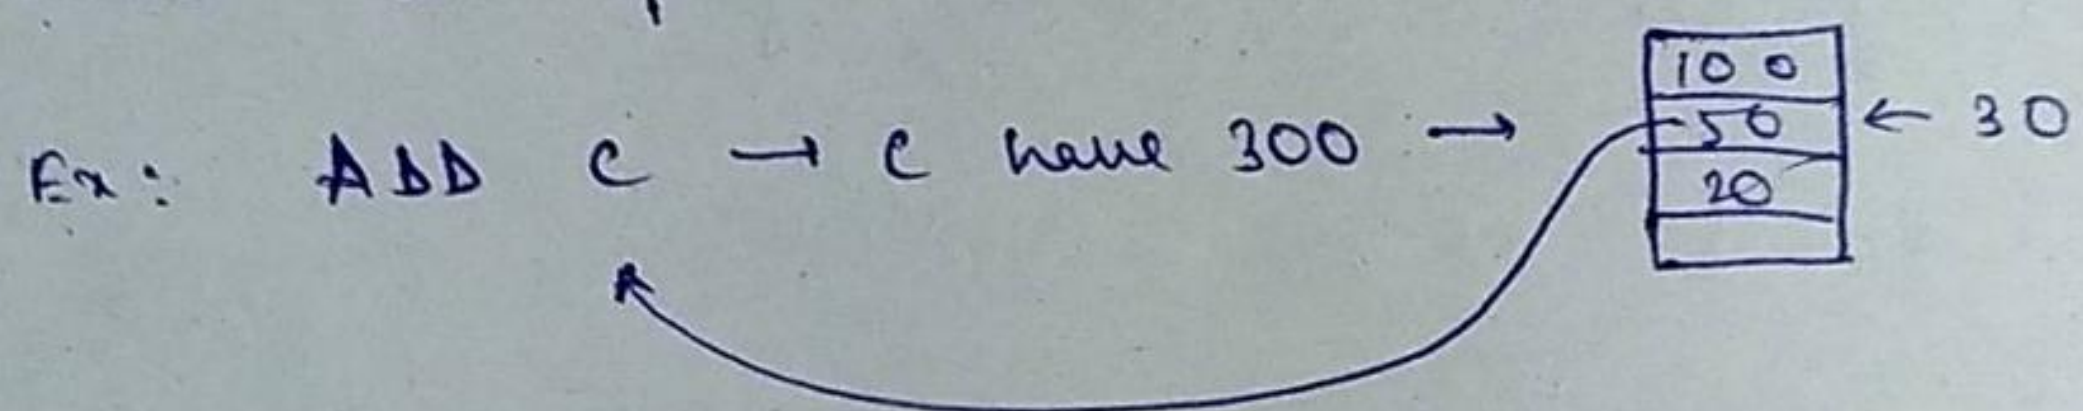 Ex: ADD C → C have 300 →
100
50 ← 30
20